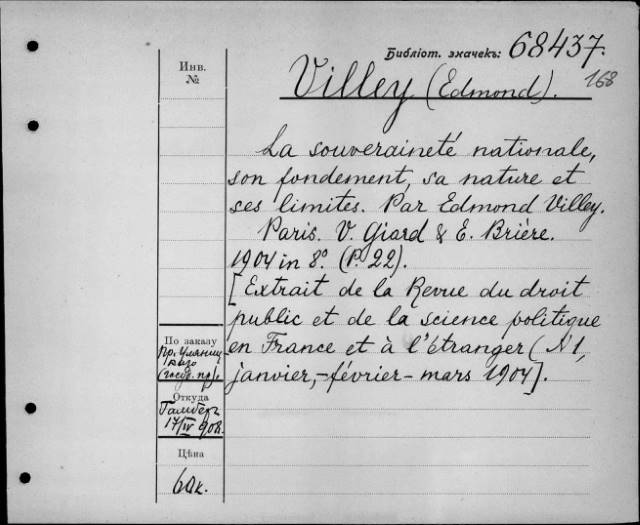 Библіот. значекъ: 68437.
168
Инв.
№
Villey (Edmond).
La souveraineté nationale,
son fondement, sa nature et
ses limites. Par Edmond Villey.
Paris. V. Giard & E. Brière.
1904 in 8º. (P. 22).
[Extrait de la Revue du droit
public et de la science politique
en France et à l'étranger (N 1,
janvier,-février-mars 1904].
По заказу
Пр. Уляниц-
(госуд. пр.)
Откуда
17/IV 908.
Цѣна
60к.